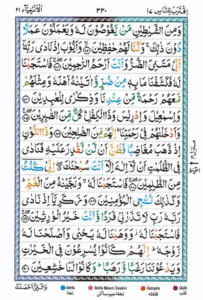 اِقْتَرَبَ لِلنَّاسِ ١٧ ٣٣٠ الْاَنْبِيَآء ٢١
وَمِنَ الشَّيٰطِيْنِ مَنْ يَّغُوْصُوْنَ لَهٗ وَيَعْمَلُوْنَ عَمَلًا
دُوْنَ ذٰلِكَ ۚ وَكُنَّا لَهُمْ حٰفِظِيْنَ ۙ وَاَيُّوْبَ اِذْ نَادٰى رَبَّهٗۤ
اَنِّيْ مَسَّنِيَ الضُّرُّ وَاَنْتَ اَرْحَمُ الرّٰحِمِيْنَ ۚ فَاسْتَجَبْنَا
لَهٗ فَكَشَفْنَا مَا بِهٖ مِنْ ضُرٍّ وَّاٰتَيْنٰهُ اَهْلَهٗ وَمِثْلَهُمْ
مَّعَهُمْ رَحْمَةً مِّنْ عِنْدِنَا وَذِكْرٰى لِلْعٰبِدِيْنَ
وَاِسْمٰعِيْلَ وَاِدْرِيْسَ وَذَا الْكِفْلِ ؕ كُلٌّ مِّنَ الصّٰبِرِيْنَ
وَاَدْخَلْنٰهُمْ فِيْ رَحْمَتِنَا ؕ اِنَّهُمْ مِّنَ الصّٰلِحِيْنَ وَذَا النُّوْنِ
اِذْ ذَّهَبَ مُغَاضِبًا فَظَنَّ اَنْ لَّنْ نَّقْدِرَ عَلَيْهِ فَنَادٰى
فِي الظُّلُمٰتِ اَنْ لَّاۤ اِلٰهَ اِلَّاۤ اَنْتَ سُبْحٰنَكَ ۖ اِنِّيْ كُنْتُ
مِنَ الظّٰلِمِيْنَ فَاسْتَجَبْنَا لَهٗ ۙ وَنَجَّيْنٰهُ مِنَ الْغَمِّ ؕ
وَكَذٰلِكَ نُـْۨجِي الْمُؤْمِنِيْنَ وَزَكَرِيَّاۤ اِذْ نَادٰى
رَبَّهٗ رَبِّ لَا تَذَرْنِيْ فَرْدًا وَّاَنْتَ خَيْرُ الْوٰرِثِيْنَ
فَاسْتَجَبْنَا لَهٗ ۫ وَوَهَبْنَا لَهٗ يَحْيٰى وَاَصْلَحْنَا لَهٗ
زَوْجَهٗ ؕ اِنَّهُمْ كَانُوْا يُسٰرِعُوْنَ فِي الْخَيْرٰتِ
وَيَدْعُوْنَنَا رَغَبًا وَّرَهَبًا ؕ وَكَانُوْا لَنَا خٰشِعِيْنَ